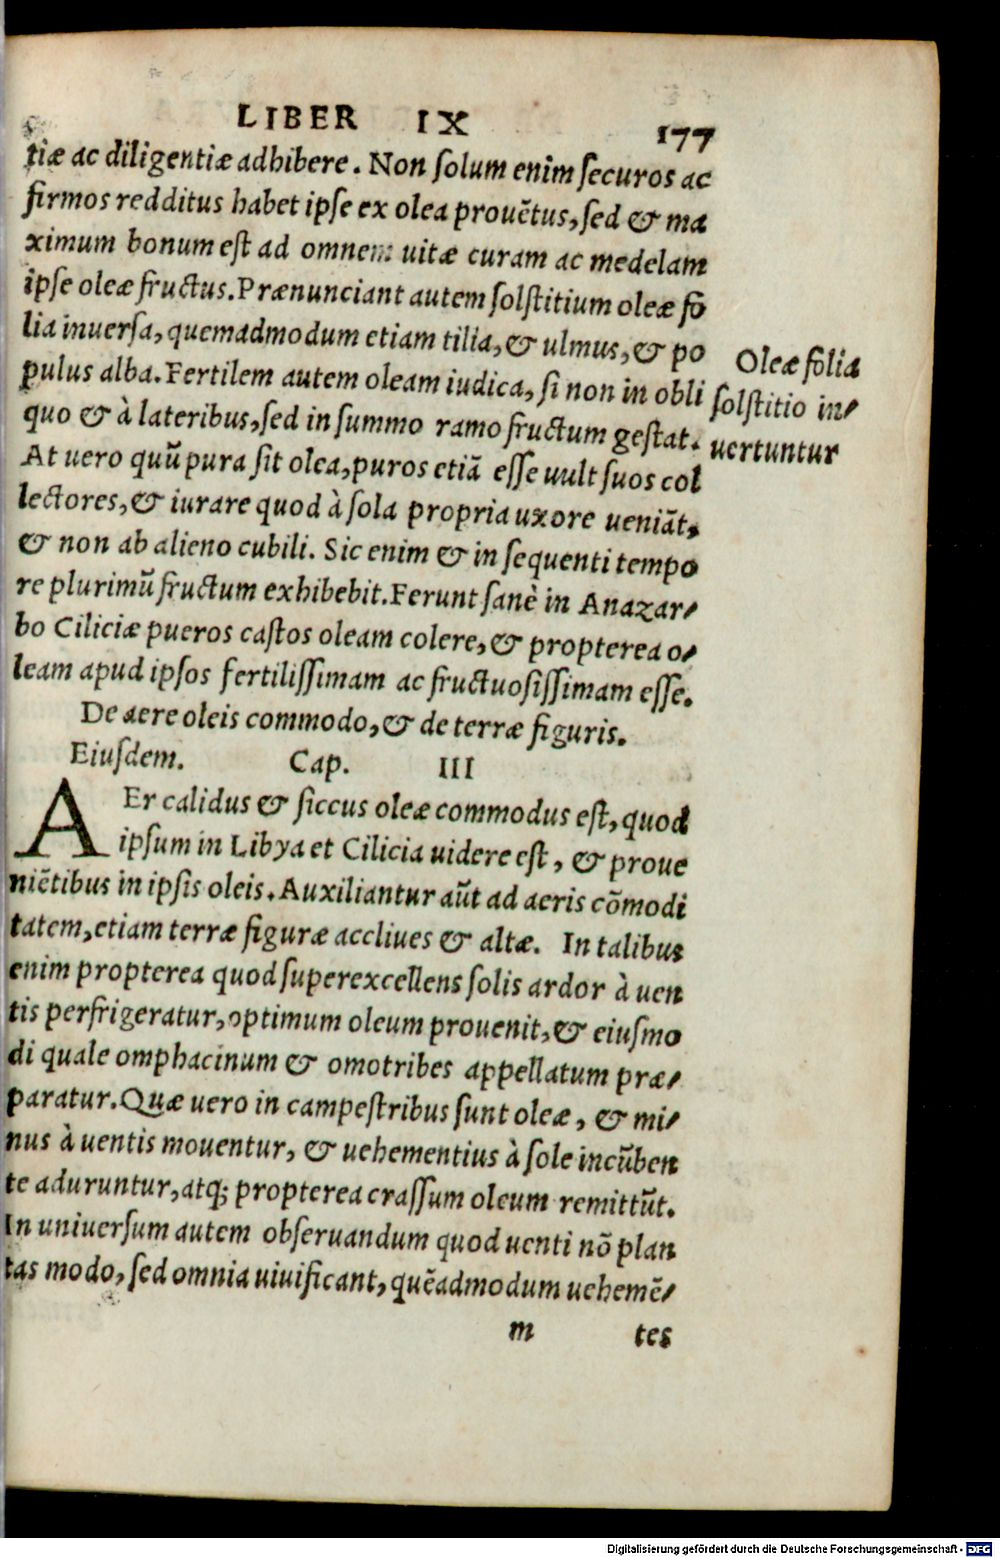 LIBER IX 177
tiæ ac diligentiæ adhibere. Non ſolum enim ſecuros ac
firmos redditus habet ipſe ex olea prouẽtus, ſed & ma
ximum bonum eſt ad omnem uitæ curam ac medelam
ipſe oleæ fructus. Prænunciant autem ſolſtitium oleæ fo
lia inuerſa, quemadmodum etiam tilia, & ulmus, & po
pulus alba. Fertilem autem oleam iudica, ſi non in obli
quo & à lateribus, ſed in ſummo ramo fructum geſtat.
At uero quũ pura ſit olea, puros etiã eſſe uult ſuos col
lectores, & iurare quod à ſola propria uxore ueniãt,
& non ab alieno cubili. Sic enim & in ſequenti tempo
re plurimũ fructum exhibebit. Ferunt ſanè in Anazar⸗
bo Ciliciæ pueros caſtos oleam colere, & propterea o⸗
leam apud ipſos fertiliſſimam ac fructuoſiſſimam eſſe.
Oleæ folia
ſolſtitio in⸗
uertuntur
De aere oleis commodo, & de terræ figuris.
Eiuſdem. Cap. III
AEr calidus & ſiccus oleæ commodus eſt, quod
ipſum in Libya et Cilicia uidere eſt, & proue
niẽtibus in ipſis oleis. Auxiliantur aũt ad aeris cõmodi
tatem, etiam terræ figuræ accliues & altæ. In talibus
enim propterea quod ſuperexcellens ſolis ardor à uen
tis perfrigeratur, optimum oleum prouenit, & eiuſmo
di quale omphacinum & omotribes appellatum præ⸗
paratur. Quæ uero in campeſtribus ſunt oleæ, & mi⸗
nus à uentis mouentur, & uehementius à ſole incũben
te aduruntur, atq; propterea craſſum oleum remittũt.
In uniuerſum autem obſeruandum quod uenti nõ plan
tas modo, ſed omnia uiuificant, quẽadmodum uehemẽ⸗
m tes
Digitalisierung gefördert durch die Deutsche Forschungsgemeinschaft - DFG